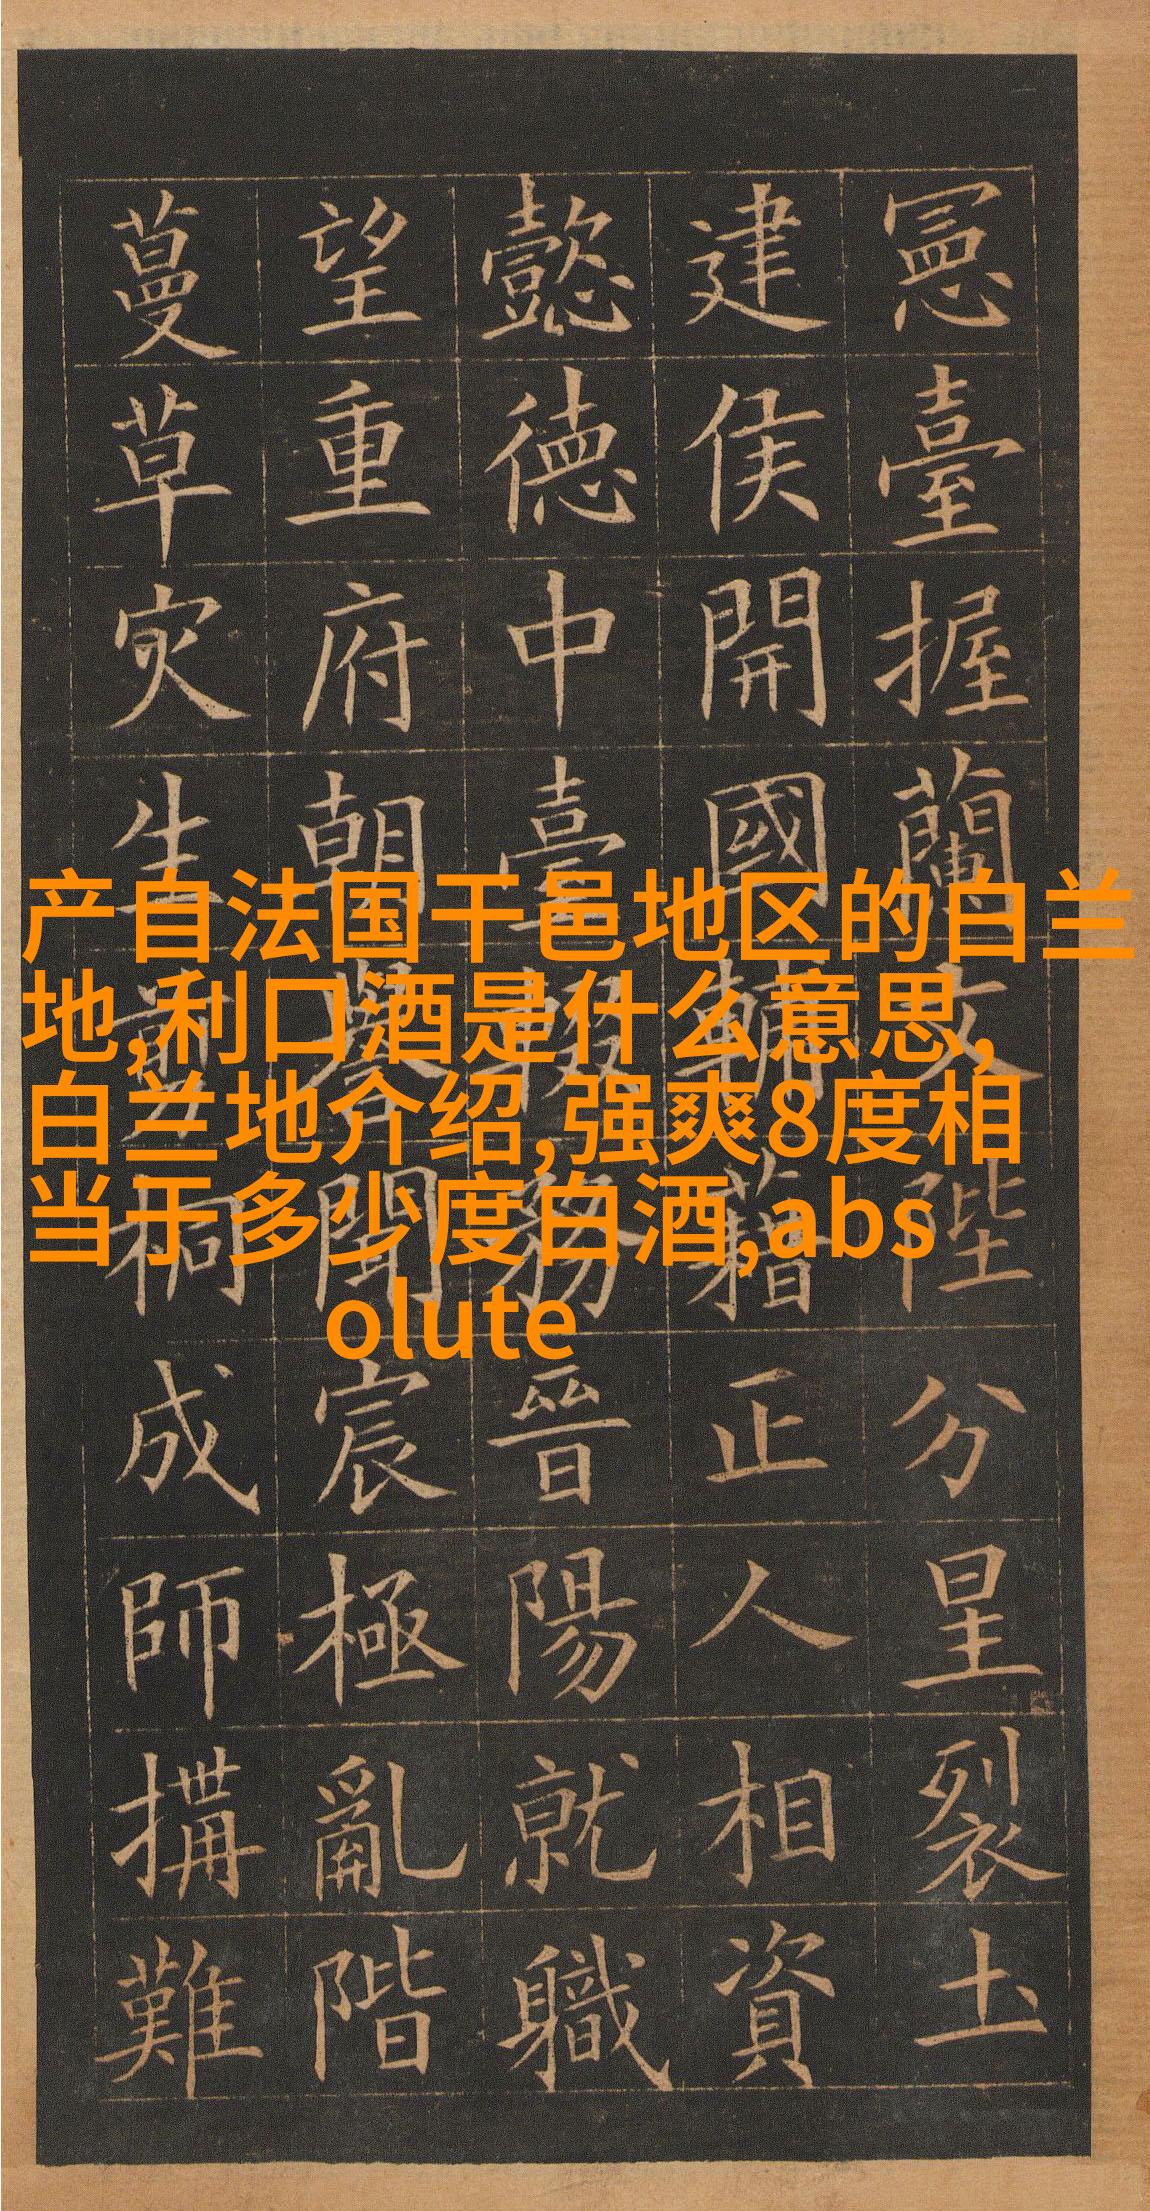 憲臺握蘭文陛分星裂土
建侯開國輔藉正人相資
懿德中臺輟務晉陽就職
望重府朝譽聞宸極亂階
蔓草灾生剪桐成師搆難
产自法国干邑地区的白兰
地,利口酒是什么意思,
白兰地介绍,强爽8度相
当于多少度白酒,abs
olute